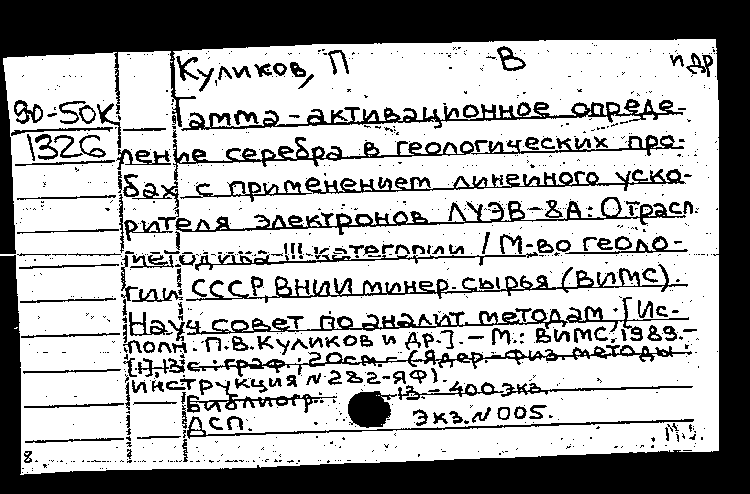 Куликов, П В и др
90-50К Гамма-активационное опреде-
1326 ление серебра в геологических про-
бах с применением линейного уско-
рителя электронов ЛУЭВ-8А: Отрасл.
методика III категории / М-во геоло-
гии СССР, ВНИИ минер. сырья (ВИМС).
Науч. совет по аналит. методам; [Ис-
полн. П.В. Куликов и др.]. - М.: ВИМС, 1989.-
[1], 13 с.: граф.; 20см. - (Ядер.-физ. методы.
инструкция N 282-ЯФ).
Библиогр.: 13. - 400 экз.
ДСП. Экз. N 005.
8.